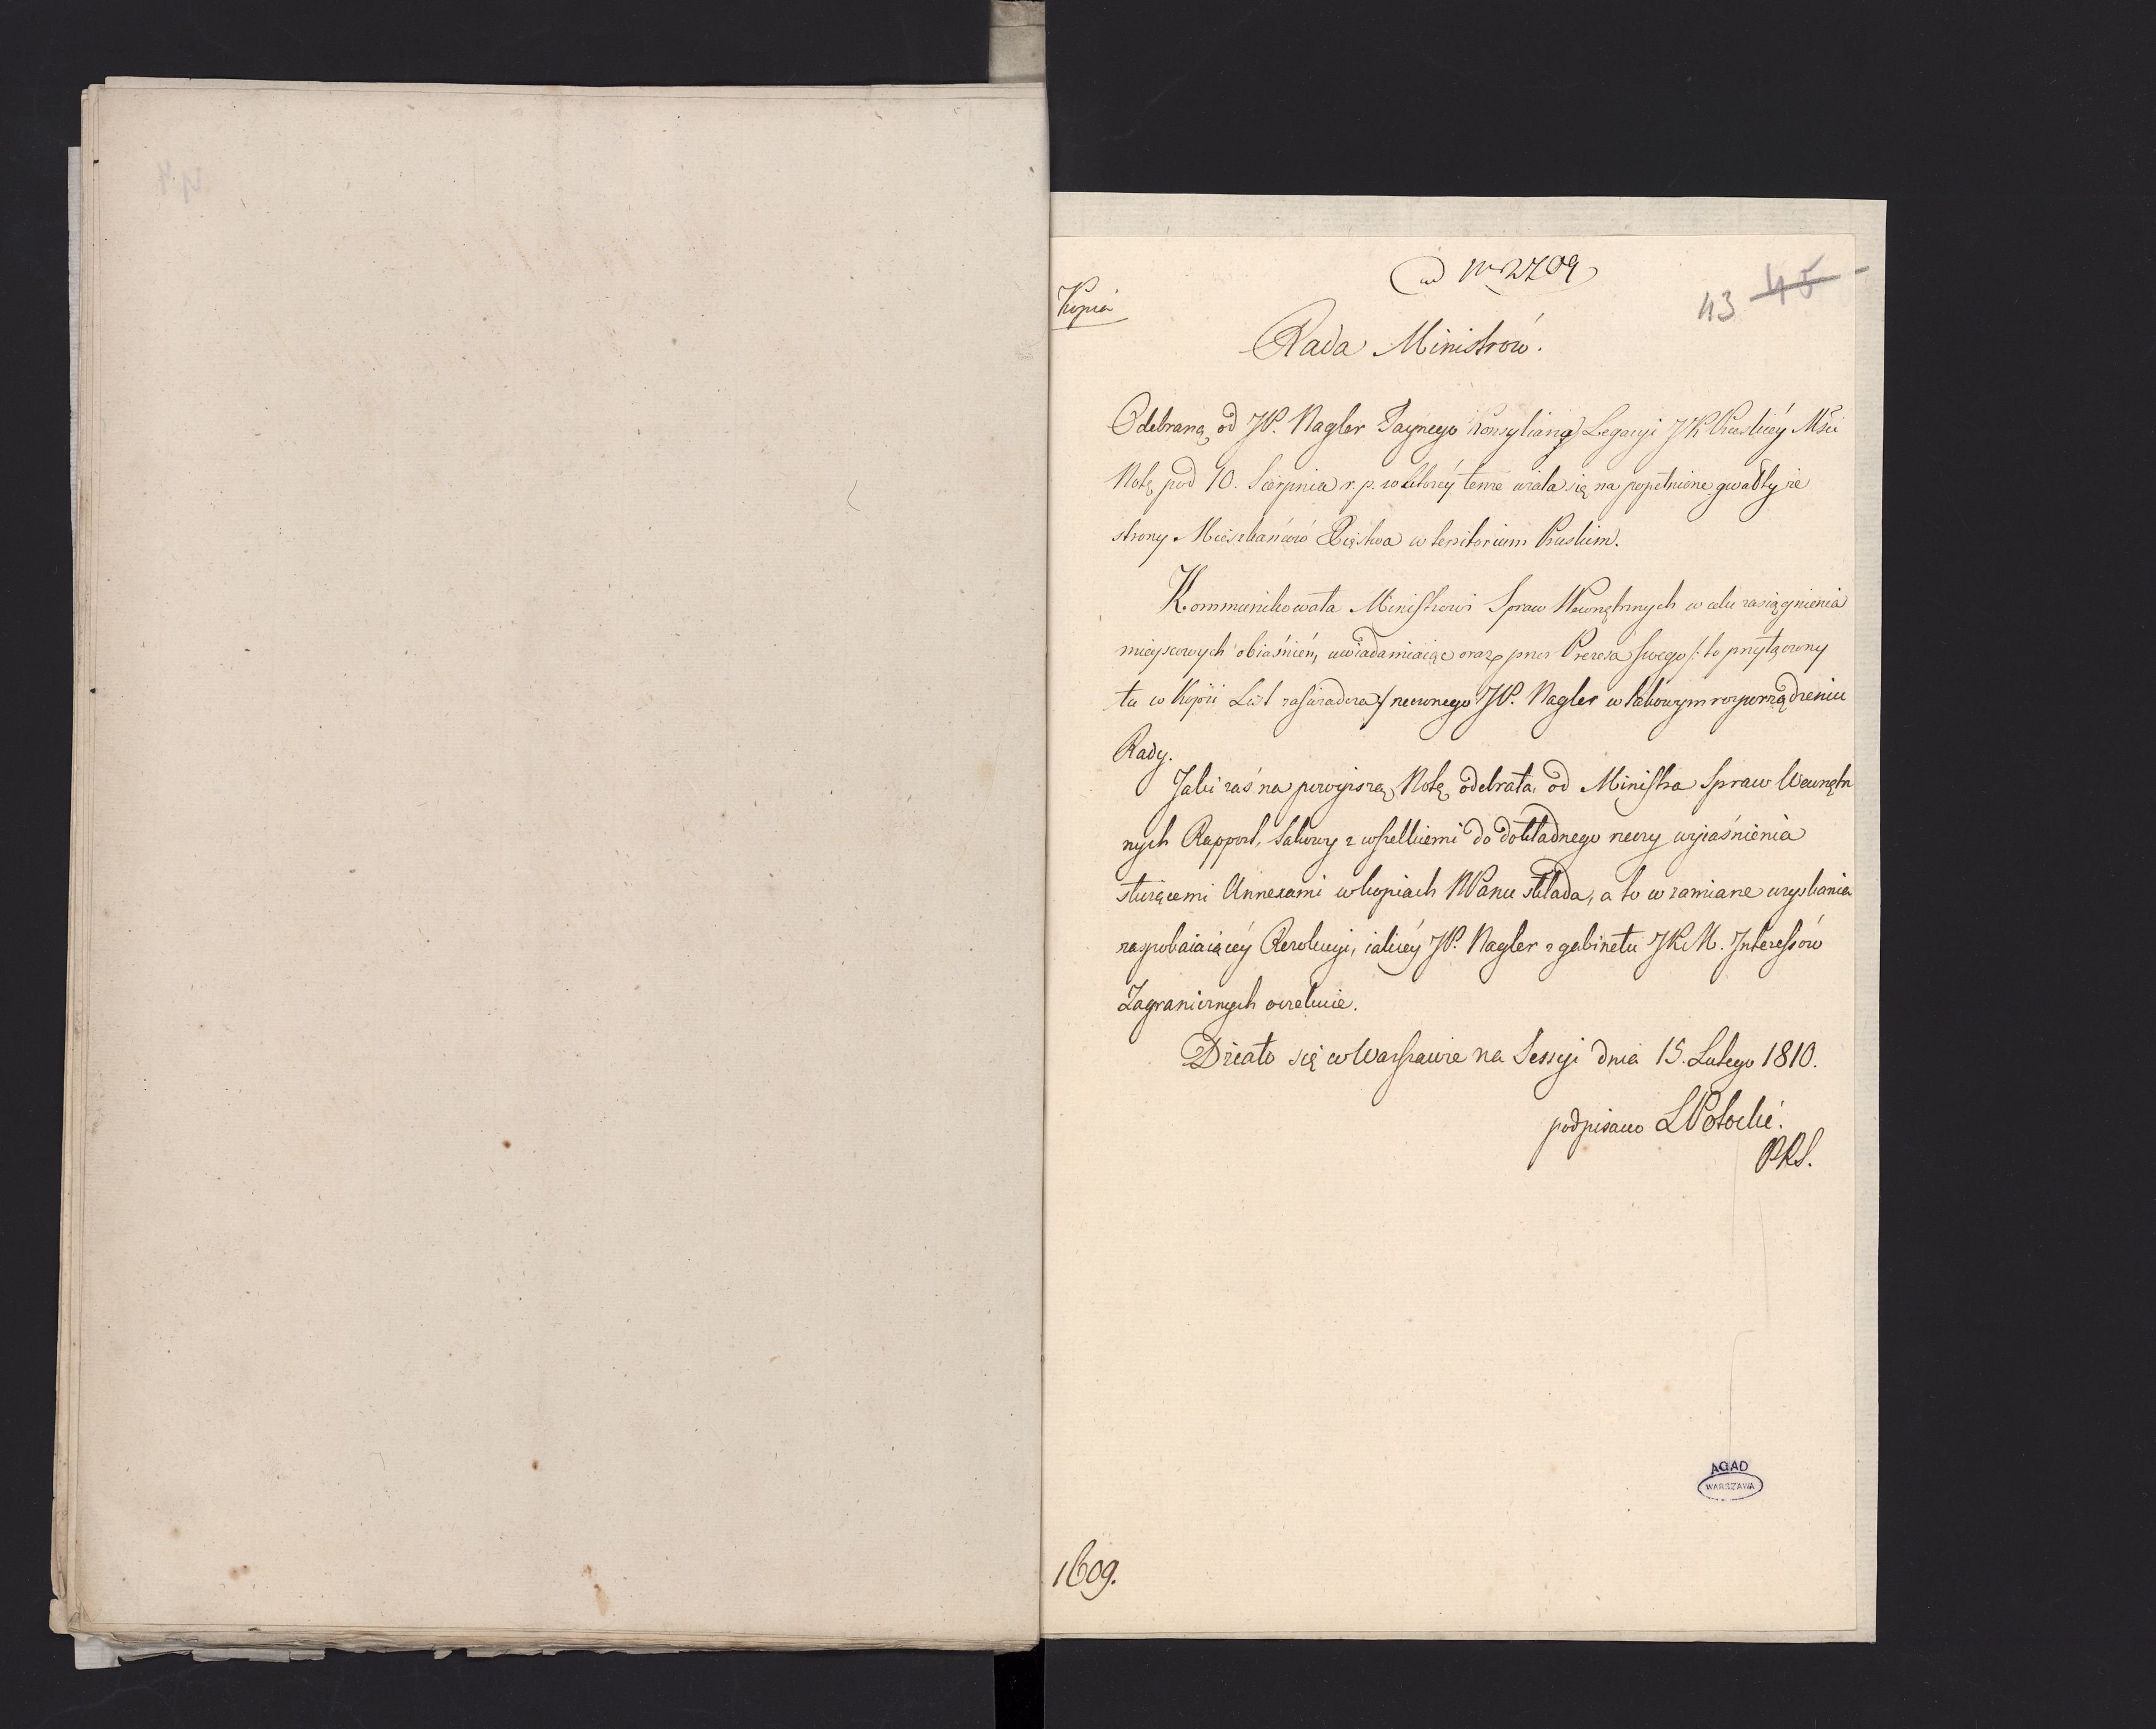 ad Nr 2709
43 45
Kopia
Rada Ministrów.
Odebraną od JP. Nagler Taynego Konsyliarza Legacyi JK Pruskiéy Mści
Notę pod 10. Sierpnia r. p. w któréy tenże użala się na popełnione gwałty ze
strony Mieszkańców Xięstwa w territorium Pruskim.
Kommunikowała Ministrowi Spraw Wewnętrznych w celu zasiągnienia
mieyscowych obiaśnień, uwiadamiaiąc oraz przez Prezesa swego /: to przyłączony
tu w Kopii List zaświadcza :/ rzeczonego JP. Nagler w takowym rozporządzeniu
Rady.
Jaki zaś na powyższą Notę odebrała od Ministra Spraw Wewnętrz
nych Rapport, takowy z wszelkiemi do dokładnego rzeczy wyiaśnienia
służącemi Annexami w kopiach WPanu składa, a to w zamiarze uzyskania
zaspokaiaiącéy Rezolucyi, iakiéy JP. Nagler z gabinetu JKM. Interessów
Zagranicznych oczekuie.
Działo się w Warszawie na Sessyi dnia 15. Lutego 1810.
podpisano L Potocki.
PRS.
AGAD
WARSZAWA
1609.